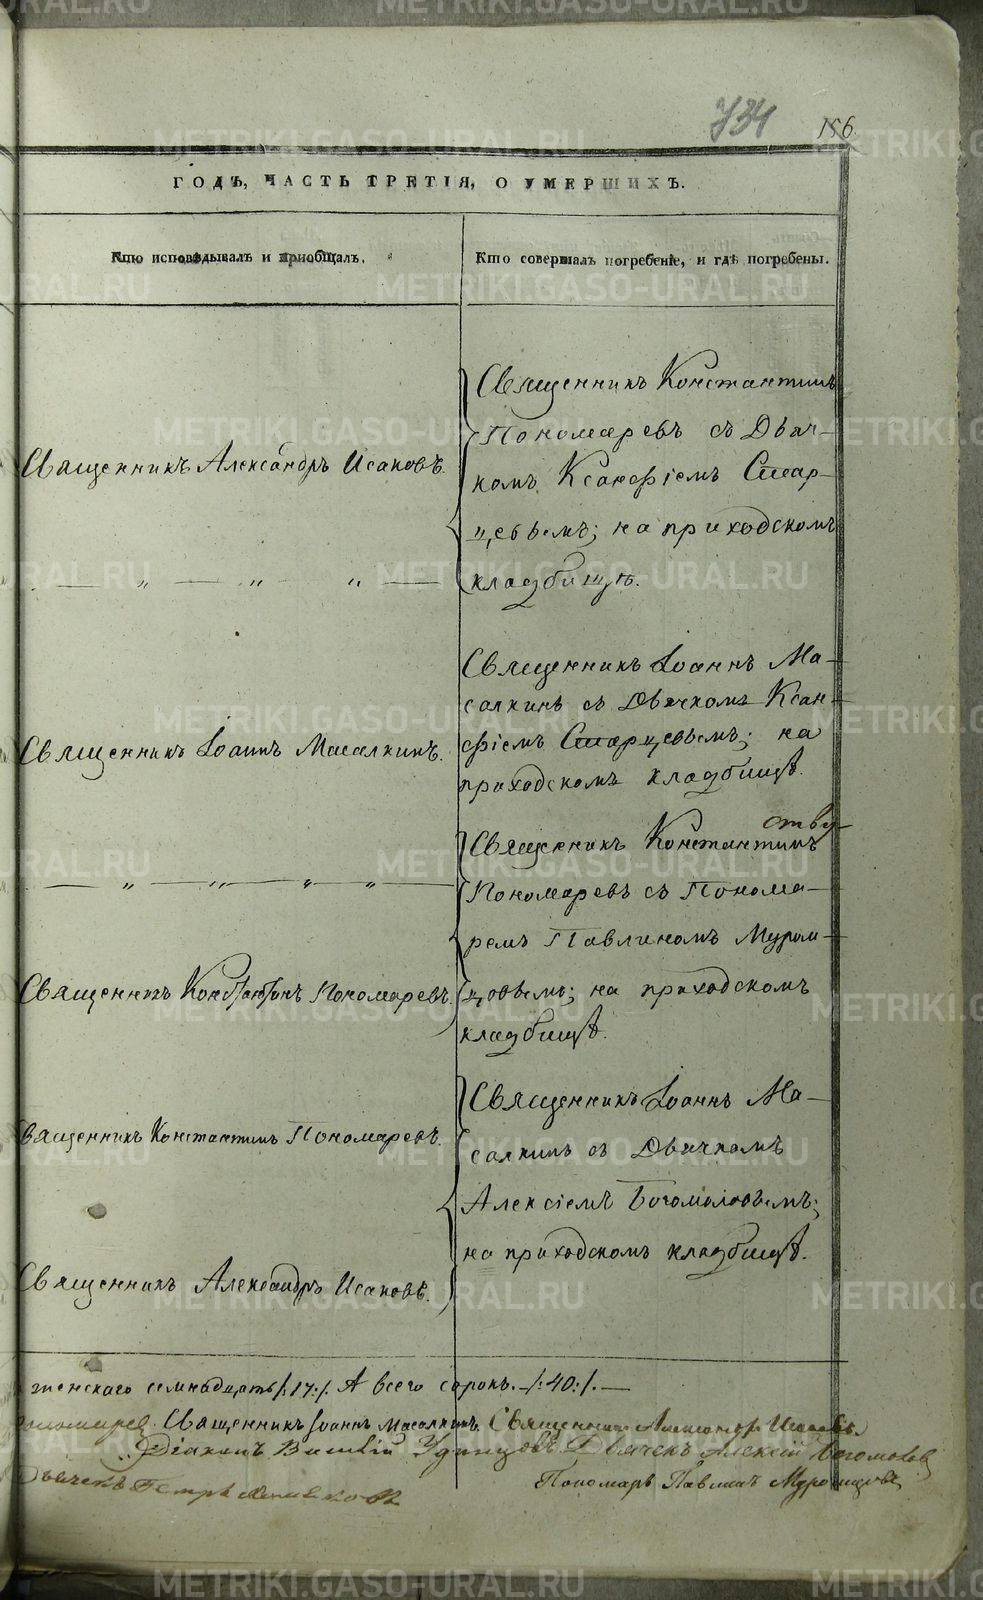 734 156
ГОДЪ, ЧАСТЬ ТРЕТІЯ, О УМЕРШИХЪ.
Кто исповѣдывалъ и приобщалъ.
Кто совершалъ погребеніе, и гдѣ погребены.
Священникъ Александръ Исаковъ.
Священникъ Константинъ
Пономаревъ съ Дьяч-
комъ Ксанфіемъ Стар-
цевымъ; на приходскомъ
кладбищѣ.
Священникъ Іоаннъ Масалкинъ.
Священникъ Іоаннъ Ма-
салкинъ съ Дьячкомъ Ксан-
фіемъ Старцевымъ; на
приходскомъ кладбищѣ.
Священникъ Константинъ
Пономаревъ съ Понома-
ремъ Павлиномъ Муром-
цовымъ; на приходскомъ
кладбищѣ.
Священникъ Константинъ Пономаревъ.
Священникъ Константинъ Пономаревъ.
Священникъ Іоаннъ Ма-
салкинъ съ Дьячкомъ
Алексіемъ Богомоловымъ;
на приходскомъ кладбищѣ.
Священникъ Александръ Исаковъ.
женскаго семнадцать /:17:/. А всего сорокъ. /:40:/.
Священникъ Іоаннъ Масалкинъ. Священникъ Александръ Исаковъ.
Діаконъ Удинцовъ. Дьячекъ Алексій Богомоловъ
Дьячекъ Петръ
Пономарь Павлинъ Муромцовъ
METRIKI.GASO-URAL.RU